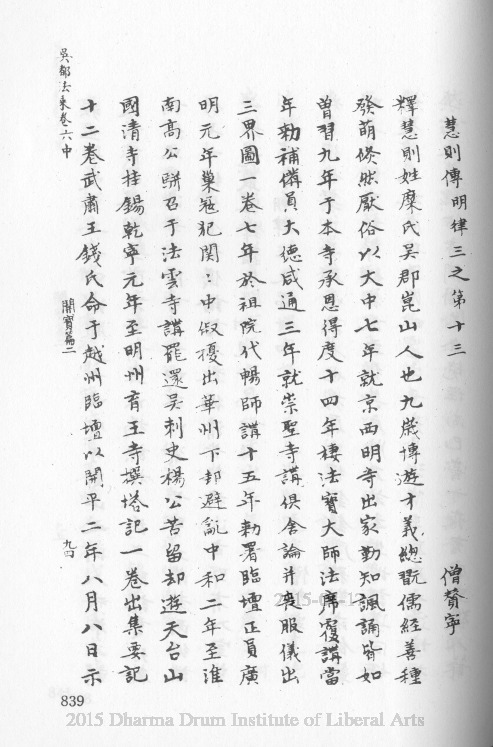 慧則傳明律三之第十三　僧贊寧
釋慧則姓糜氏吳郡崑山人也九歲博遊才義總翫儒經善種
發萌倏然厭俗以大中七年就京西明寺出家勤知諷誦皆如
曽習九年于本寺承恩得度十四年棲法寶大師法席覆講當
年勑補備員大德咸通三年就崇聖寺講俱舍論并喪服儀出
三界圖一卷七年於祖院代暢師講十五年勑署臨壇正員廣
明元年巢冦犯関：中俶擾出華州下邽避亂中和二年至淮
南高公駢召于法雲寺講罷還吳刺史楊公苦留却遊天台山
國清寺挂錫乾寧元年至明州育王寺撰塔記一卷出集要記
十二卷武肅王錢氏命于越州臨壇以開平二年八月八日示
吳都法乘卷六中　闡寶篇二　九四
839
2015-04-12
2015 Dharma Drum Institute of Liberal Arts